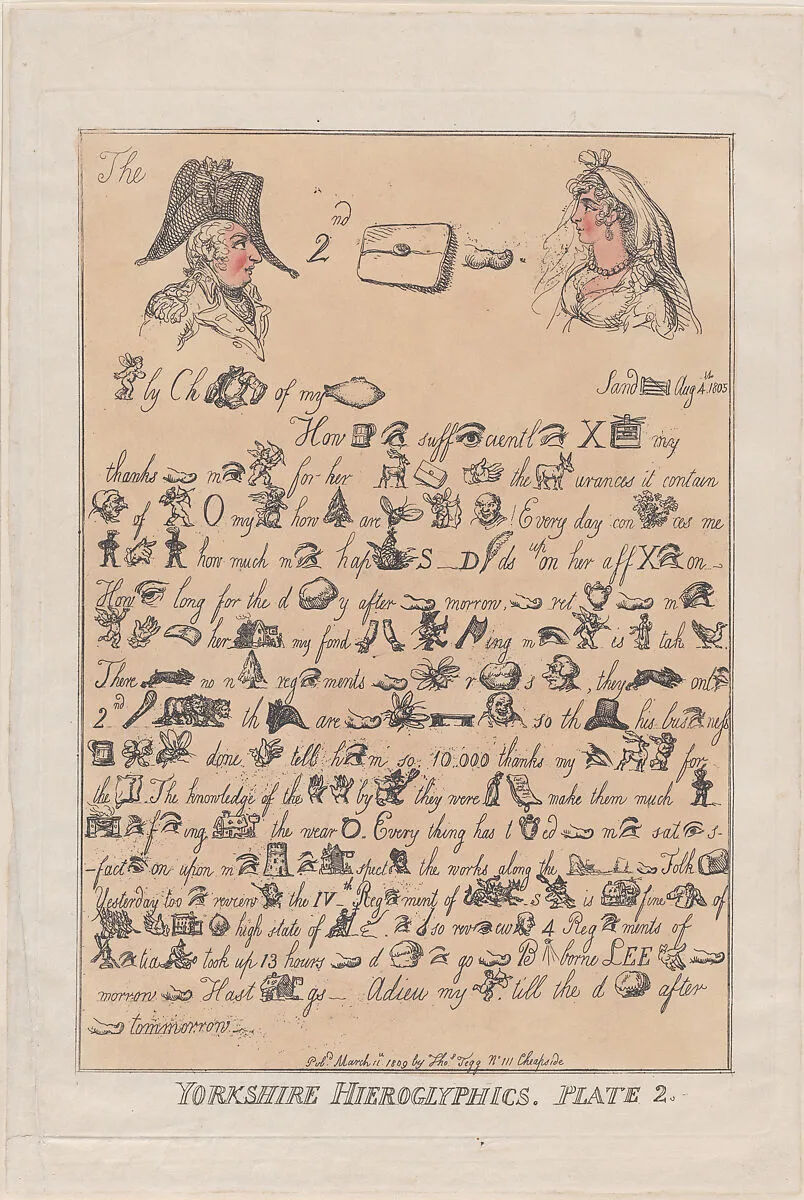 The
2nd
ly Ch of my Sand Aug 4th 1805
How suff cientl X my
thanks m for her the urances it contain
of O my how are ! Every day con ces me
how much m hap S D ds upon her aff X on
How long for the d y after morrow, ret m
her my fond ing m is tak
There no n reg ments r s , they onl
2nd th are so th his bus ness
done tell h m so 10.000 thanks my for
the . The knowledge of the by they were make them much
f ing the wear O. Every thing has t ed m sat s-
-fact on upon m spect the works along the Folk
Yesterday too review the IVth Reg ment of s is fine of
high state of so rev ew 4 Reg ments of
tia took up 13 hours d go B borne LEE
morrow Hast gs Adieu my till the d after
tommorrow
Pubd March 11th 1809 by Thos Tegg No 111 Cheapside
YORKSHIRE HIEROGLYPHICS. PLATE 2.